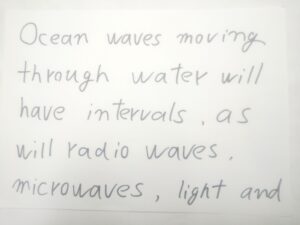 Ocean waves moving
through water will
have intervals, as
will radio waves,
microwaves, light and